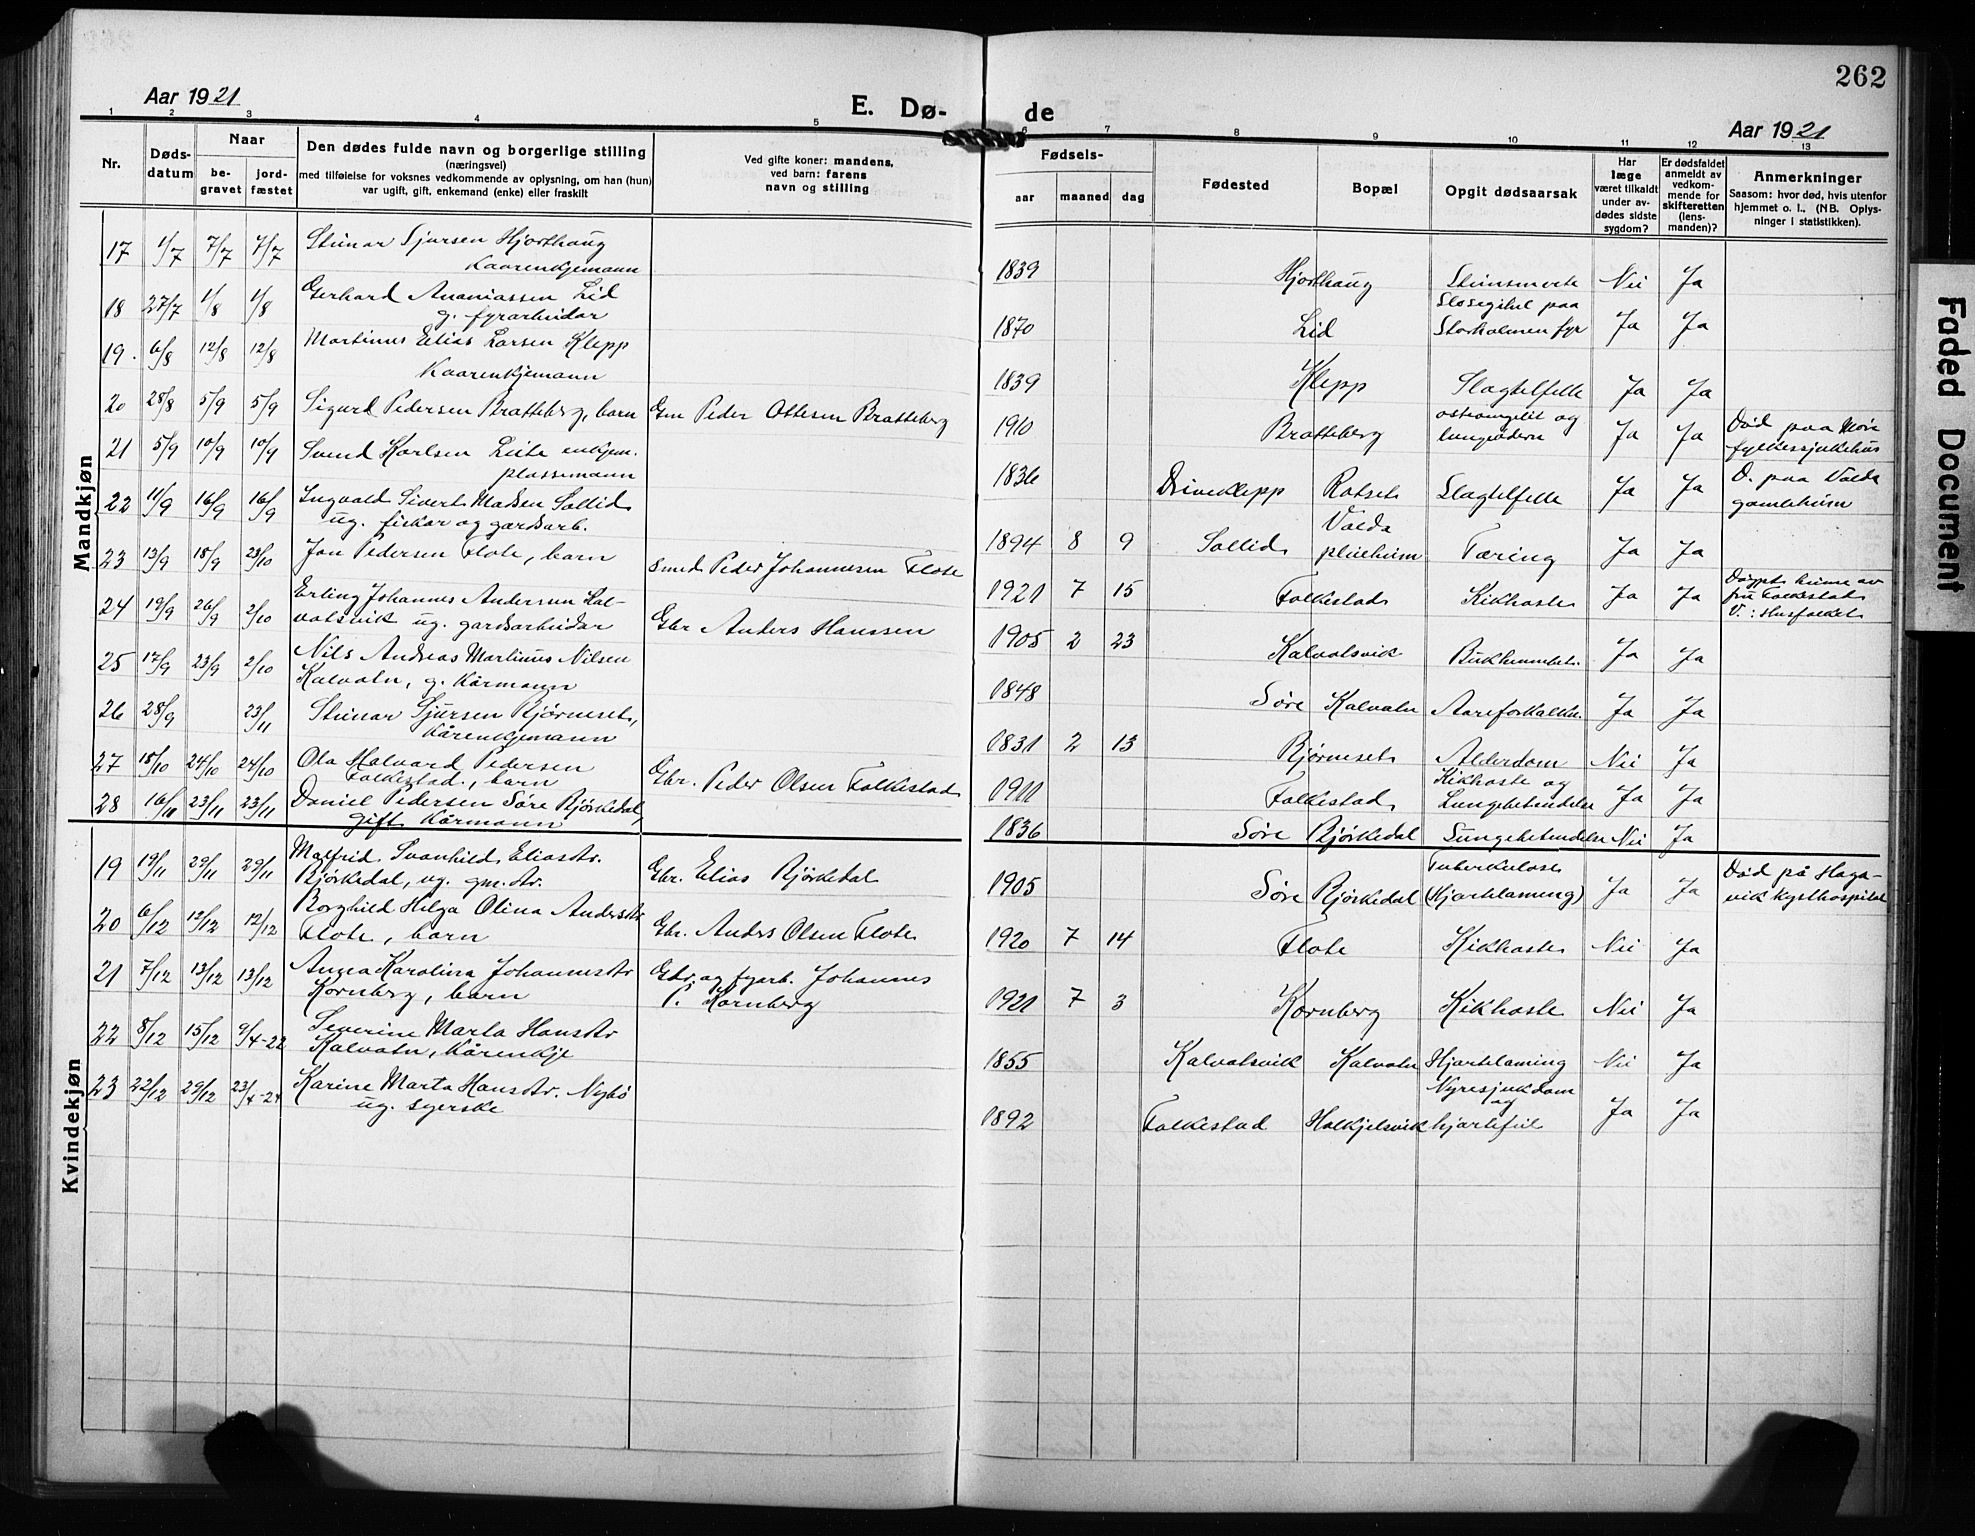 262
Aar 1921
E. Dø- de
Aar 1921
1 2 3 4 5 6 7 8 9 10 11 12 13
Nr.
Døds-
datum
Naar
be-
gravet
jord-
fæstet
Den dødes fulde navn og borgerlige stilling
(næringsvei)
med tilføielse for voksnes vedkommende av oplysning, om han (hun)
var ugift, gift, enkemand (enke) eller fraskilt
Ved gifte koner: mandens,
ved barn: farens
navn og stilling
Fødsels-
aar maaned dag
Fødested
Bopæl
Opgit dødsaarsak
Har
læge
været tilkaldt
under av-
dødes sidste
sygdom?
Er dødsfaldet
anmeldt av
vedkom-
mende for
skifteretten
(lens-
manden)?
Anmerkninger
Saasom: hvor død, hvis utenfor
hjemmet o. l., (NB. Oplys-
ninger i statistikken).
Mandkjøn
17 1/7 7/7 7/7 Steinar Sjursen Hjorthaug
Kaarenkjemann
1839 Hjorthaug Nei Ja
18 27/7 1/8 1/8 Gerhard Ananiassen Lid
g. fyrarbeidar
1870 Lid Storholmen fyr Ja Ja
19. 6/8 12/8 12/8 Martinus Elias Larsen Klepp
Kaarenkjemann
1839 Klepp Slagtelfelle Ja Ja
20 28/8 5/9 5/9 Sigurd Pedersen Bratteberg, barn Gm Peder Ottesen Bratteberg
1910 Bratteberg og Ja Ja Død paa Møre
fylkessjukehus
21 5/9 10/9 10/9 Svend Karlsen Leite enkjem.
plassemann
1836 Driveklepp Rotset Slagtelfelle Ja Ja D. paa Volda
gamleheim
22 11/9 16/9 16/9 Ingvald Sivert Madsen Sollid
ug. fiskar og gardsarb.
1894 8 9 Sollid Volda
pleieheim Tæring Ja Ja
23 13/9 18/9 23/10 Jon Pedersen Flote, barn Smed Peder Johannesen Flote
1921 7 15 Folkestad Kikhoste Ja Ja Døypt heime av
frå Folkestad
V.: Husfolket
24 19/9 26/9 2/10 Erling Johannes Andersen Kal-
vatsvik ug. gardsarbeidar Gbr Anders Hanssen
1905 2 23 Kalvatsvik Ja Ja
25 17/9 23/9 2/10 Nils Andreas Martinus Nilsen
Kalvatn, g. kårmann
1848 Søre Kalvatn Aareforkalkn. Ja Ja
26 28/9 23/11 Steinar Sjursen Bjørneset,
Kårenkjemann
1831 2 13 Bjørneset Alderdom Nei Ja
27 18/10 24/10 24/10 Ola Halvard Pedersen
Folkestad, barn Gbr. Peder Olsen Folkestad
1911 Folkestad Kikhoste og
Lungebetendelse Ja Ja
28 16/11 23/11 23/11 Daniel Pedersen Søre Bjørkedal,
gift kårmann
1836 Søre Bjørkedal Lungebetendelse Nei Ja
Kvindekjøn
19 19/11 29/11 29/11 Malfrid Svanhild Eliasdtr.
Bjørkedal, ug. gm.dtr. Gbr. Elias Bjørkedal
1905 Søre Bjørkedal Tuberkulose
(Hjartelaming) Ja Ja Død på Haga-
vik kysthospital
20 6/12 12/12 12/12 Borghild Helga Olina Andersdtr
Flote, barn Gbr. Anders Olsen Flote
1920 7 14 Flote Kikhoste Nei Ja
21 7/12 13/12 13/12 Anna Karolina Johannesdtr
Kornberg, barn Gbr. og fyrarb. Johannes
P. Kornberg
1921 7 3 Kornberg Kikhoste Nei Ja
22 8/12 15/12 9/4-22 Severine Marta Hansdtr
Kalvatn, kårenkje
1855 Kalvatsvik Kalvatn Hjartelaming Nei Ja
23 22/12 29/12 23/4-24 Karine Marta Hansdtr. Nybø
ug. syerske
1892 Folkestad Holkjelsvik Nyresjukdom
og
hjartefeil Ja Ja
Faded Document